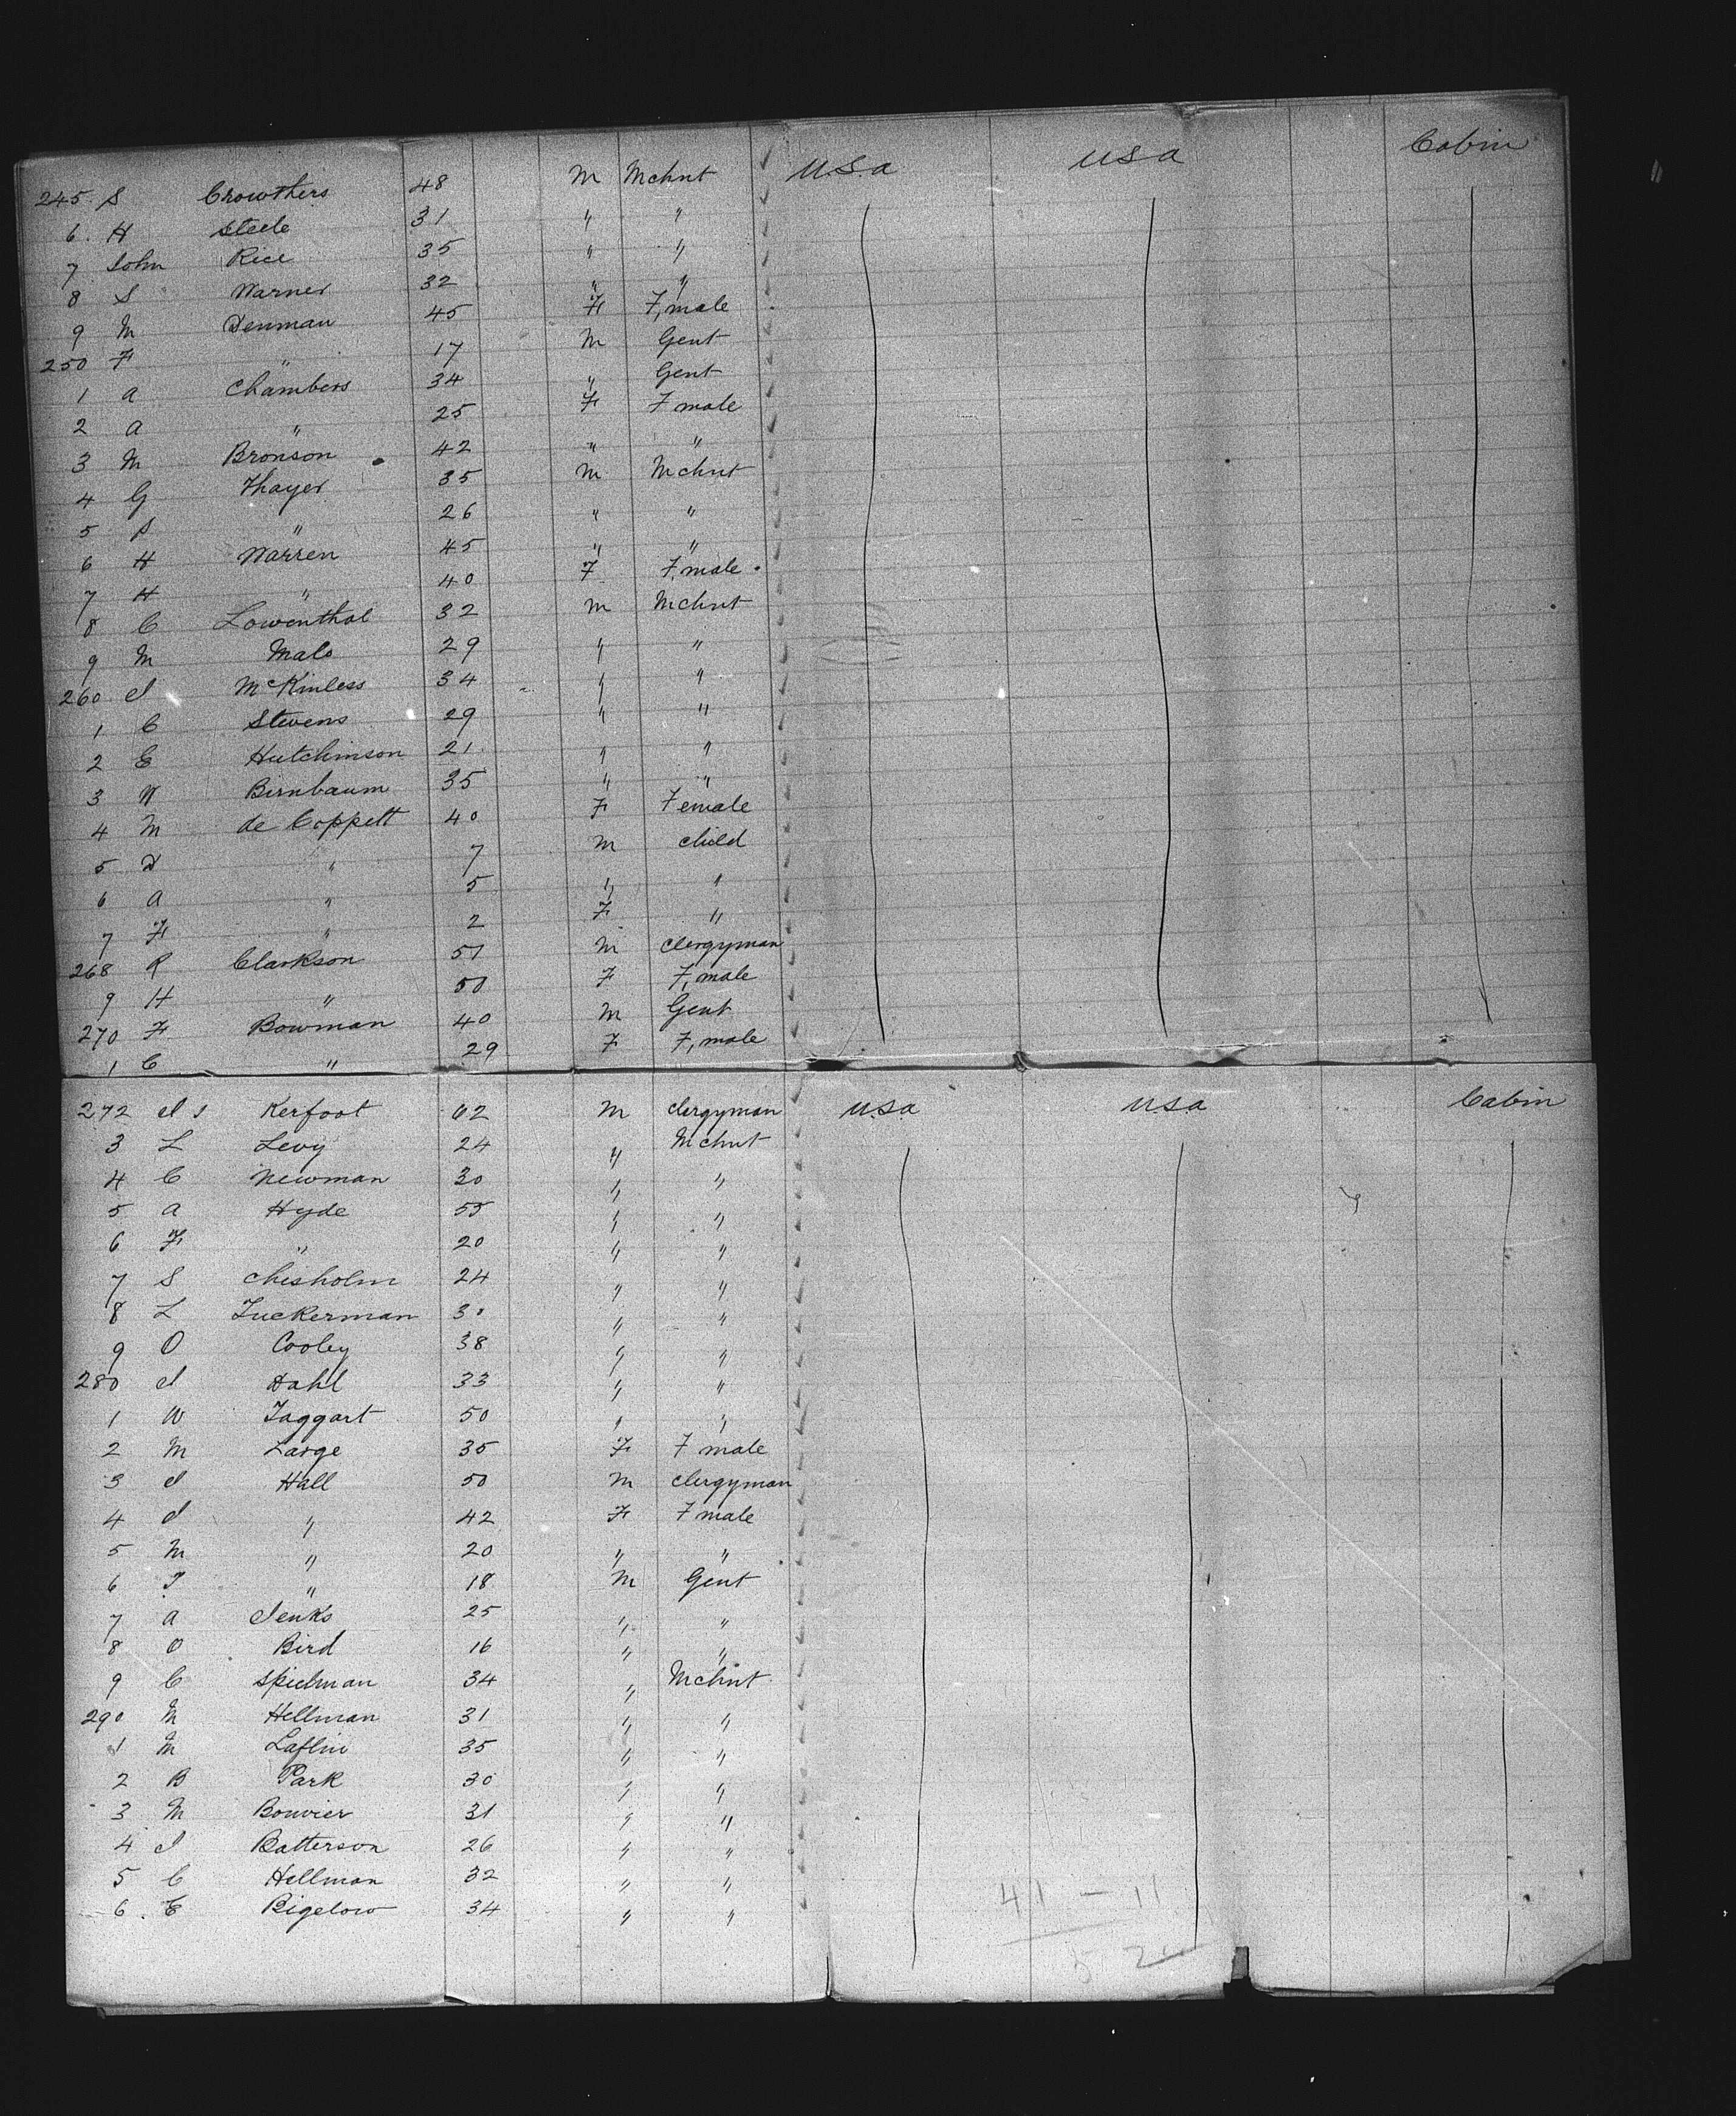 245 S Crowthers 48 M Mchnt USA USA Cabin
6 H Steele 31 " "
7 John Rice 35 " "
8 S Warner 32 " "
9 M Denman 45 F F,male
250 F " 17 M Gent
1 A Chambers 34 " Gent
2 A " 25 F F male
3 M Bronson 42 " "
4 G Thayer 35 M Mchnt
5 S " 26 " "
6 H Warren 45 " "
7 H " 40 F F,male
8 C Lowenthal 32 M Mchnt
9 M Malo 29 " "
260 J McKinless 34 " "
1 C Stevens 29 " "
2 E Hutchinson 21 " "
3 W Birnbaum 35 " "
4 M de Coppett 40 F Female
5 D " 7 M child
6 A " 5 " "
7 F " 2 F "
268 R Clarkson 51 M Clergyman
9 H " 50 F F,male
270 F Bowman 40 M Gent
1 C " 29 F F,male
272 J J Kerfoot 62 M Clergyman USA USA Cabin
3 L Levy 24 " Mchnt
4 C Newman 30 " "
5 A Hyde 55 " "
6 F " 20 " "
7 S Chisholm 24 " "
8 L Tuckerman 30 " "
9 O Cooley 38 " "
280 J Dahl 33 " "
1 W Taggart 50 " "
2 M Large 35 F F male
3 J Hall 50 M Clergyman
4 J " 42 F F male
5 M " 20 " "
6 T " 18 M Gent
7 A Jenks 25 " "
8 O Bird 16 " "
9 C Spielman 34 " Mchnt
290 M Hellman 31 " "
1 M Laflin 35 " "
2 B Park 30 " "
3 M Bouvier 31 " "
4 J Batterson 26 " "
5 C Hellman 32 " "
6 E Bigelow 34 " "
41 – 11